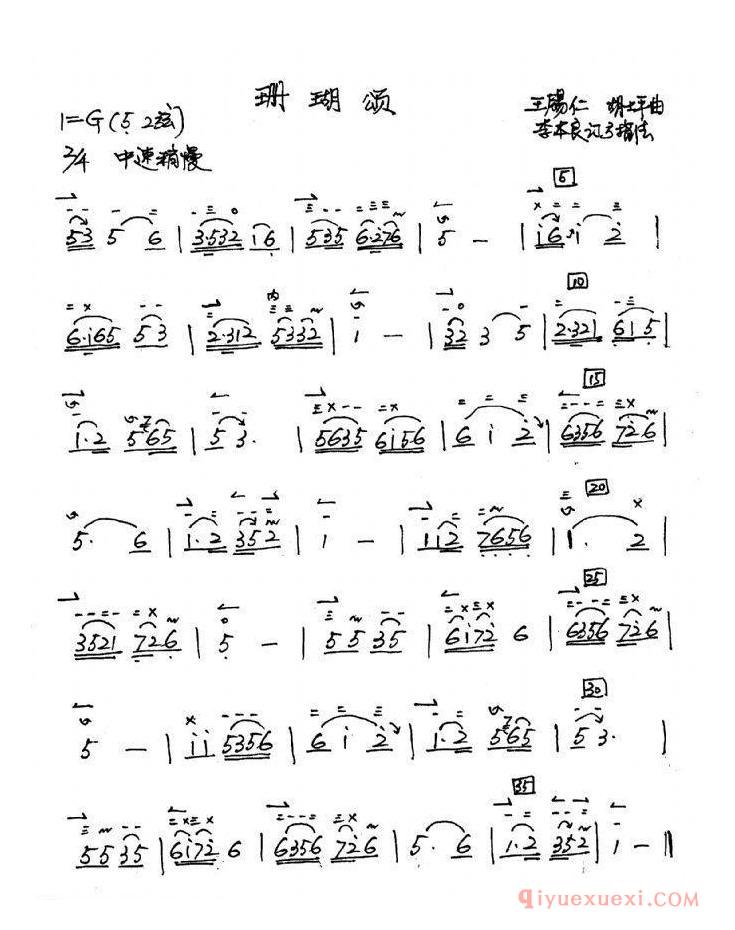 珊瑚颂
1=G(5 2弦)
王锡仁 胡士平曲
李本良记弓指法
2/4 中速稍慢
5
53 5 6 | 3·532 i6 | 535 6·276 | 5 — | i6·i 2 |
内 10
6·i65 53 | 2·312 5332 | i — | 32 3 5 | 2·321 615 |
15
1·2 565 | 5 3· | 5635 6i56 | 6 i 2 | 6356 726 |
20
5· 6 | 1·2 352 | i — | 112 7656 | 1· 2 |
25
3521 726 | 5 — | 55 35 | 6i72 6 | 6356 726 |
30
5 — | ii 5356 | 6 i 2 | 1·2 565 | 5 3· |
35
55 35 | 6i72 6 | 6356 726 | 5· 6 | 1·2 352 | i — ||
Qiyuexuexi.com